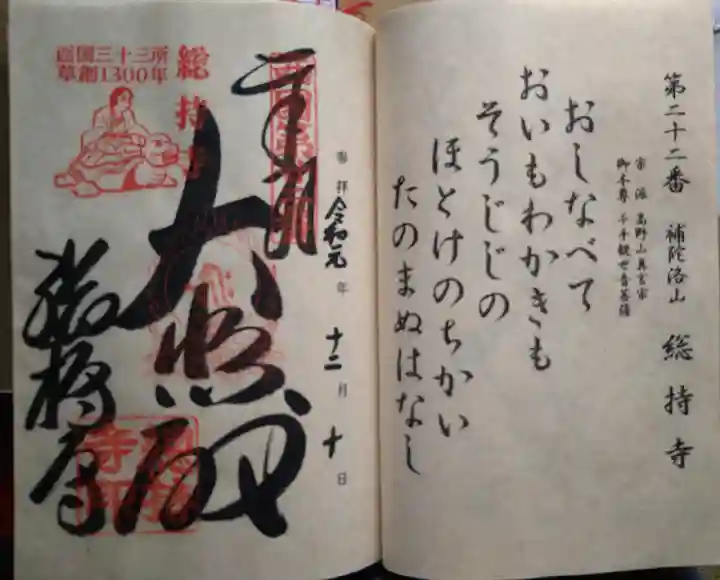 第二十二番 補陀洛山 総持寺
宗派 高野山真言宗
御本尊 千手観世音菩薩
おしなべて
おいもわかきも
そうじじの
ほとけのちかい
たのまぬはなし
奉拝 令和元年十二月十日
大悲殿
総持寺
西国三十三所
草創1300年
総持寺